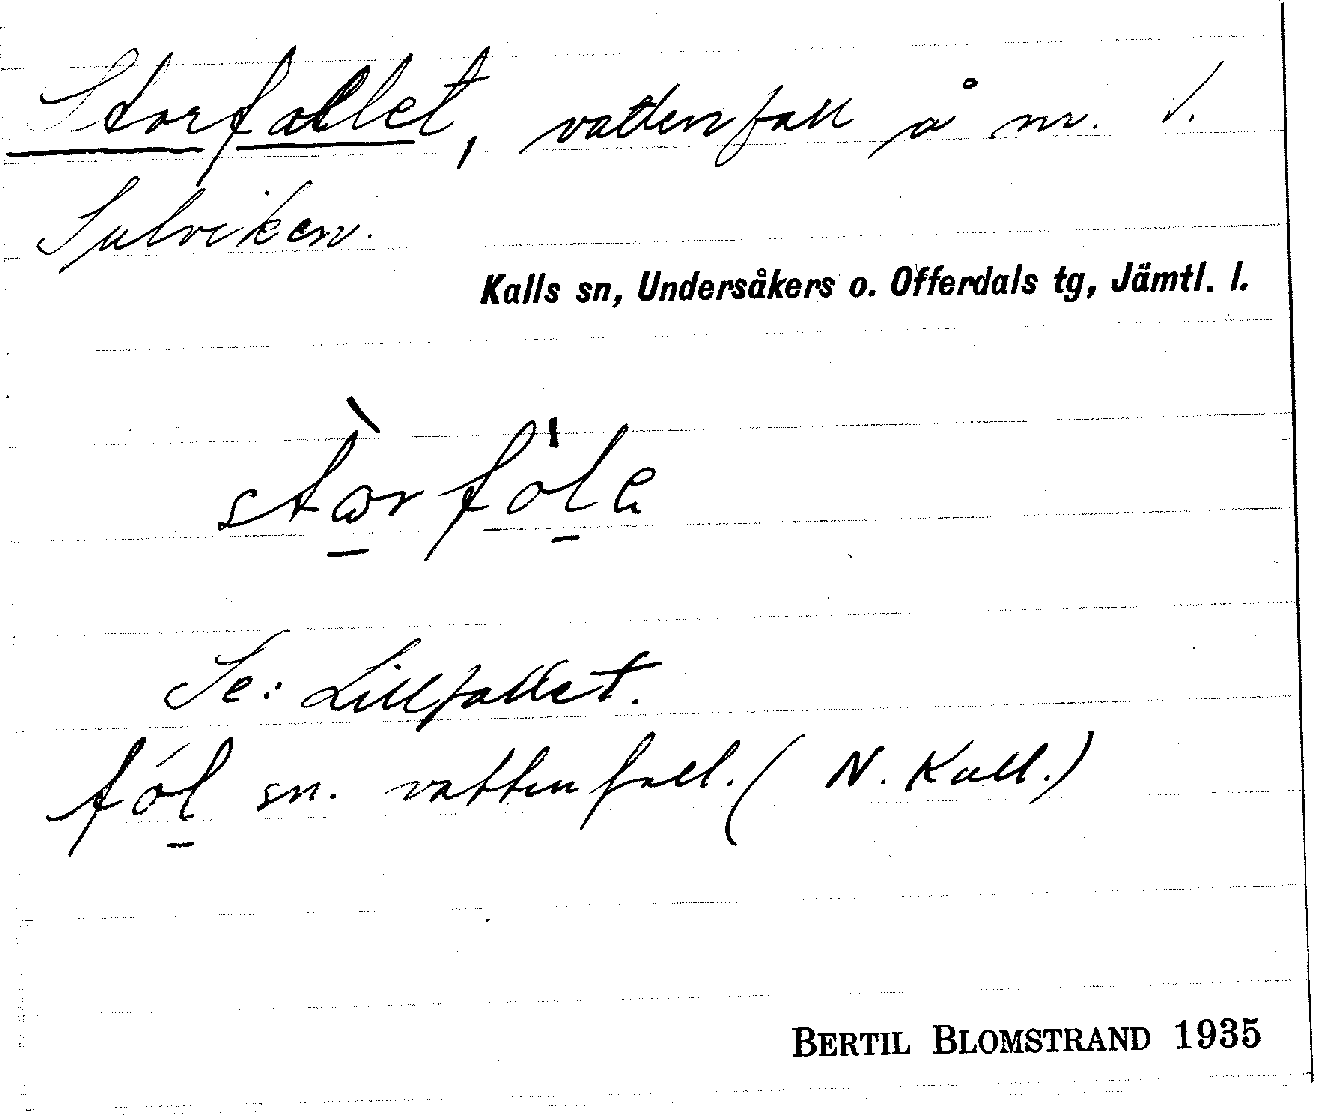 Storfallet, vattenfall å nr. 1.
Sulviken.
Kalls sn, Undersåkers o. Offerdals tg, Jämtl. l.
stòrfóle
Se: Lillfallet.
fól sn. vattenfall. (N. Kall.)
BERTIL BLOMSTRAND 1935